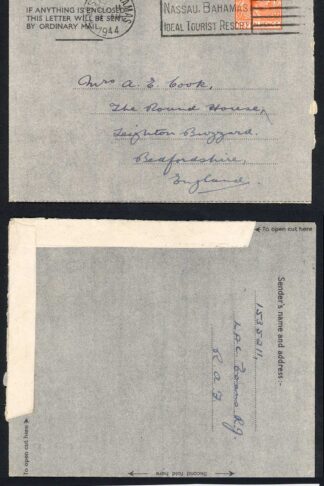 IF ANYTHING IS ENCLOSED
THIS LETTER WILL BE SENT
BY ORDINARY MAIL.
BAHAMAS
1944
NASSAU, BAHAMAS
IDEAL TOURIST RESORT
Mrs A. E. Cook,
The Round House,
Leighton Buzzard.
Bedfordshire,
England.
To open cut here
Sender's name and address:-
1535211,
LAC. Evans R.J.
R.A.F
Second fold here
To open cut here